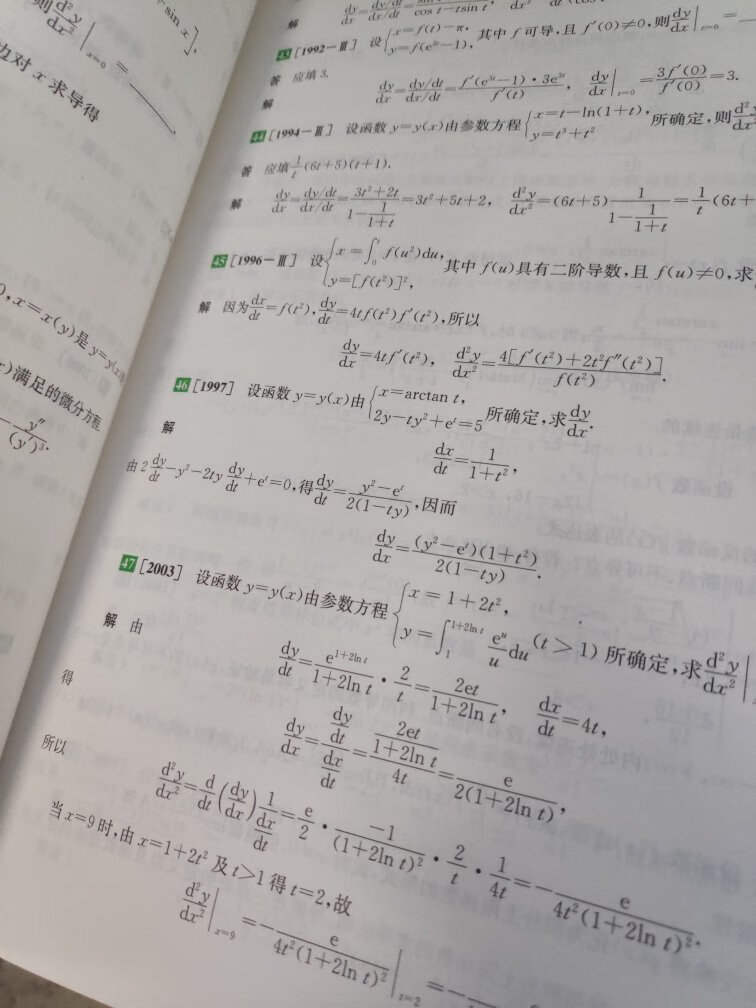 则 d²y/dx² |_{x=0} = ____
-sin x],
边对 x 求导得
0, x=x(y)是 y=y(x)
)满足的微分方程
-y''/(y')³.
解 dy/dx = (dy/dt)/(dx/dt) = / cos t-tsin t, dx²
43 [1992-Ⅲ] 设 {x=f(t)-π, y=f(e^{3t}-1), 其中 f 可导,且 f'(0)≠0,则 dy/dx |_{t=0} =
答 应填 3.
解 dy/dx = (dy/dt)/(dx/dt) = f'(e^{3t}-1)·3e^{3t}/f'(t), dy/dx |_{t=0} = 3f'(0)/f'(0) = 3.
44 [1994-Ⅲ] 设函数 y=y(x)由参数方程 {x=t-ln(1+t), y=t³+t² 所确定,则 d²y/dx²
答 应填 1/t (6t+5)(t+1).
解 dy/dx = (dy/dt)/(dx/dt) = (3t²+2t)/(1-1/(1+t)) = 3t²+5t+2, d²y/dx² = (6t+5) 1/(1-1/(1+t)) = 1/t (6t+
45 [1996-Ⅲ] 设 {x=∫_0^t f(u²)du, y=[f(t²)]², 其中 f(u)具有二阶导数,且 f(u)≠0,求
解 因为 dx/dt = f(t²), dy/dt = 4tf(t²)f'(t²),所以
dy/dx = 4tf'(t²), d²y/dx² = 4[f'(t²)+2t²f''(t²)]/f(t²).
46 [1997] 设函数 y=y(x)由 {x=arctan t, 2y-ty²+e^t=5 所确定,求 dy/dx.
解 dx/dt = 1/(1+t²),
由 2 dy/dt - y² - 2ty dy/dt + e^t = 0,得 dy/dt = (y²-e^t)/(2(1-ty)),因而
dy/dx = (y²-e^t)(1+t²)/(2(1-ty)).
47 [2003] 设函数 y=y(x)由参数方程 {x=1+2t², y=∫_1^{1+2ln t} e^u/u du (t>1) 所确定,求 d²y/dx² |
解 由
dy/dt = e^{1+2ln t}/(1+2ln t) · 2/t = 2et/(1+2ln t), dx/dt = 4t,
得
dy/dx = (dy/dt)/(dx/dt) = (2et/(1+2ln t))/4t = e/(2(1+2ln t)),
所以
d²y/dx² = d/dt (dy/dx) 1/(dx/dt) = e/2 · -1/(1+2ln t)² · 2/t · 1/4t = - e/(4t²(1+2ln t)²).
当 x=9 时,由 x=1+2t² 及 t>1 得 t=2,故
d²y/dx² |_{x=9} = - e/(4t²(1+2ln t)²) |_{t=2} = -